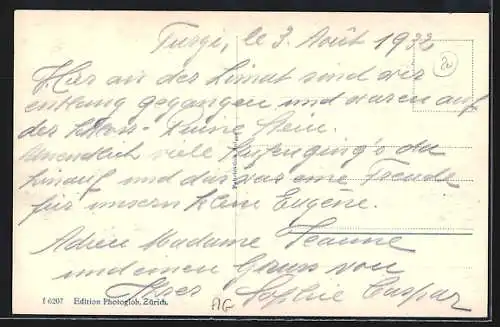 Turgi, le 3. Août 1932
Hier an der Limat sind wir
entlang gegangen und waren auf
der Schloss-Ruine Stein.
Unendlich viele Stufen ging's da
hinauf und das war eine Freude
für unsern kleinen Eugène.
Adieu Madame Jeanne
und einen Gruss von
Sophie Caspar
I 6207 Edition Photoglob, Zürich.
AG